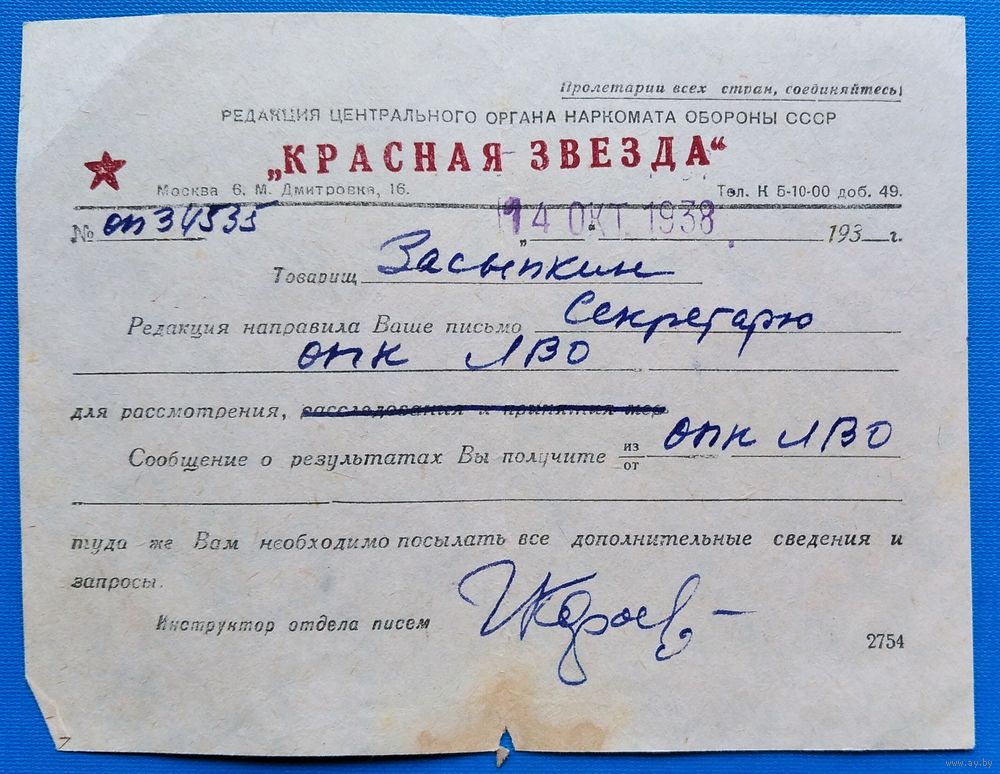 Пролетарии всех стран, соединяйтесь!
РЕДАКЦИЯ ЦЕНТРАЛЬНОГО ОРГАНА НАРКОМАТА ОБОРОНЫ СССР
„КРАСНАЯ ЗВЕЗДА“
Москва 6, М. Дмитровка, 16.
Тел. К 5-10-00 доб. 49.
№ оп34535
14 ОКТ. 1938
„ “ 193 г.
Товарищ Засыпкин
Редакция направила Ваше письмо Секретарю
ОПК ЛВО
для рассмотрения, расследования и принятия мер
Сообщение о результатах Вы получите из/от ОПК ЛВО
туда же Вам необходимо посылать все дополнительные сведения и
запросы.
Инструктор отдела писем
2754
www.ay.by